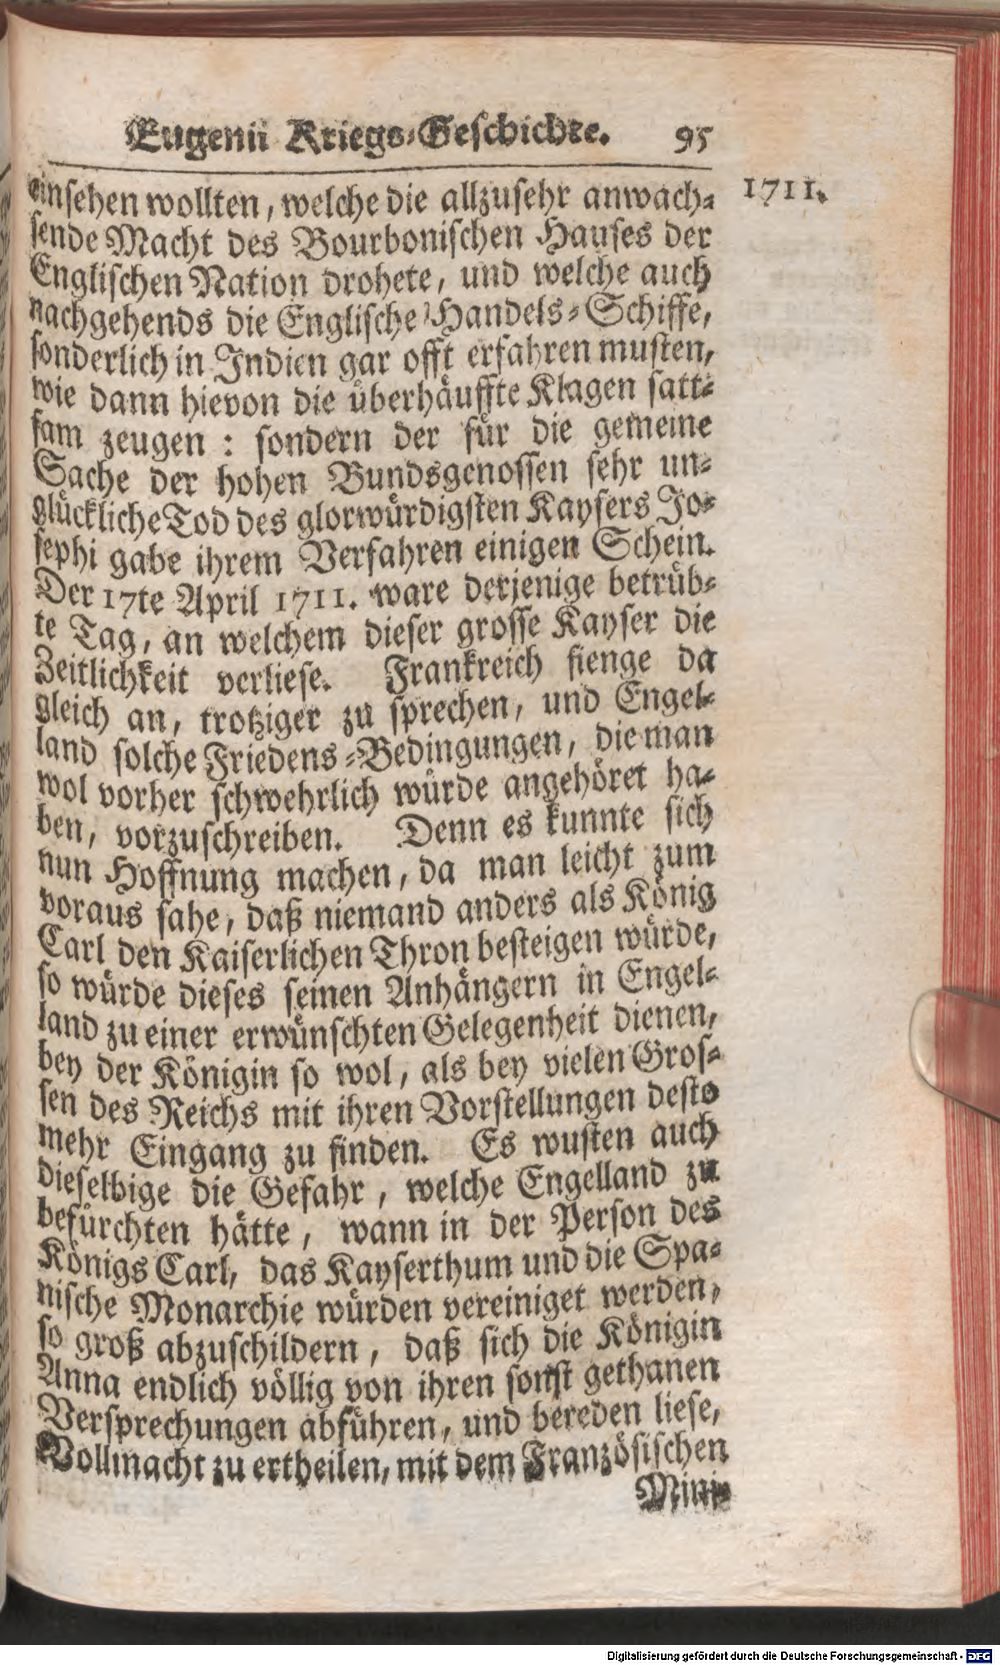 Eugenii Kriegs-Geschichte. 95
1711.
einsehen wollten, welche die allzusehr anwach-
sende Macht des Bourbonischen Hauses der
Englischen Nation drohete, und welche auch
nachgehends die Englische Handels-Schiffe,
sonderlich in Indien gar offt erfahren musten,
wie dann hievon die überhäuffte Klagen satt-
sam zeugen : sondern der für die gemeine
Sache der hohen Bundsgenossen sehr un-
glückliche Tod des glorwürdigsten Kaysers Jo-
sephi gabe ihrem Verfahren einigen Schein.
Der 17te April 1711. ware derjenige betrüb-
te Tag, an welchem dieser grosse Kayser die
Zeitlichkeit verliese. Frankreich fienge da
gleich an, trotziger zu sprechen, und Engel-
land solche Friedens-Bedingungen, die man
wol vorher schwehrlich würde angehöret ha-
ben, vorzuschreiben. Denn es kunnte sich
nun Hoffnung machen, da man leicht zum
voraus sahe, daß niemand anders als König
Carl den Kaiserlichen Thron besteigen würde,
so würde dieses seinen Anhängern in Engel-
land zu einer erwünschten Gelegenheit dienen,
bey der Königin so wol, als bey vielen Gros-
sen des Reichs mit ihren Vorstellungen desto
mehr Eingang zu finden. Es wusten auch
dieselbige die Gefahr, welche Engelland zu
befürchten hätte, wann in der Person des
Königs Carl, das Kayserthum und die Spa-
nische Monarchie würden vereiniget werden,
so groß abzuschildern, daß sich die Königin
Anna endlich völlig von ihren sonst gethanen
Versprechungen abführen, und bereden liese,
Vollmacht zu ertheilen, mit dem Französischen
Mini-
Digitalisierung gefördert durch die Deutsche Forschungsgemeinschaft - DFG